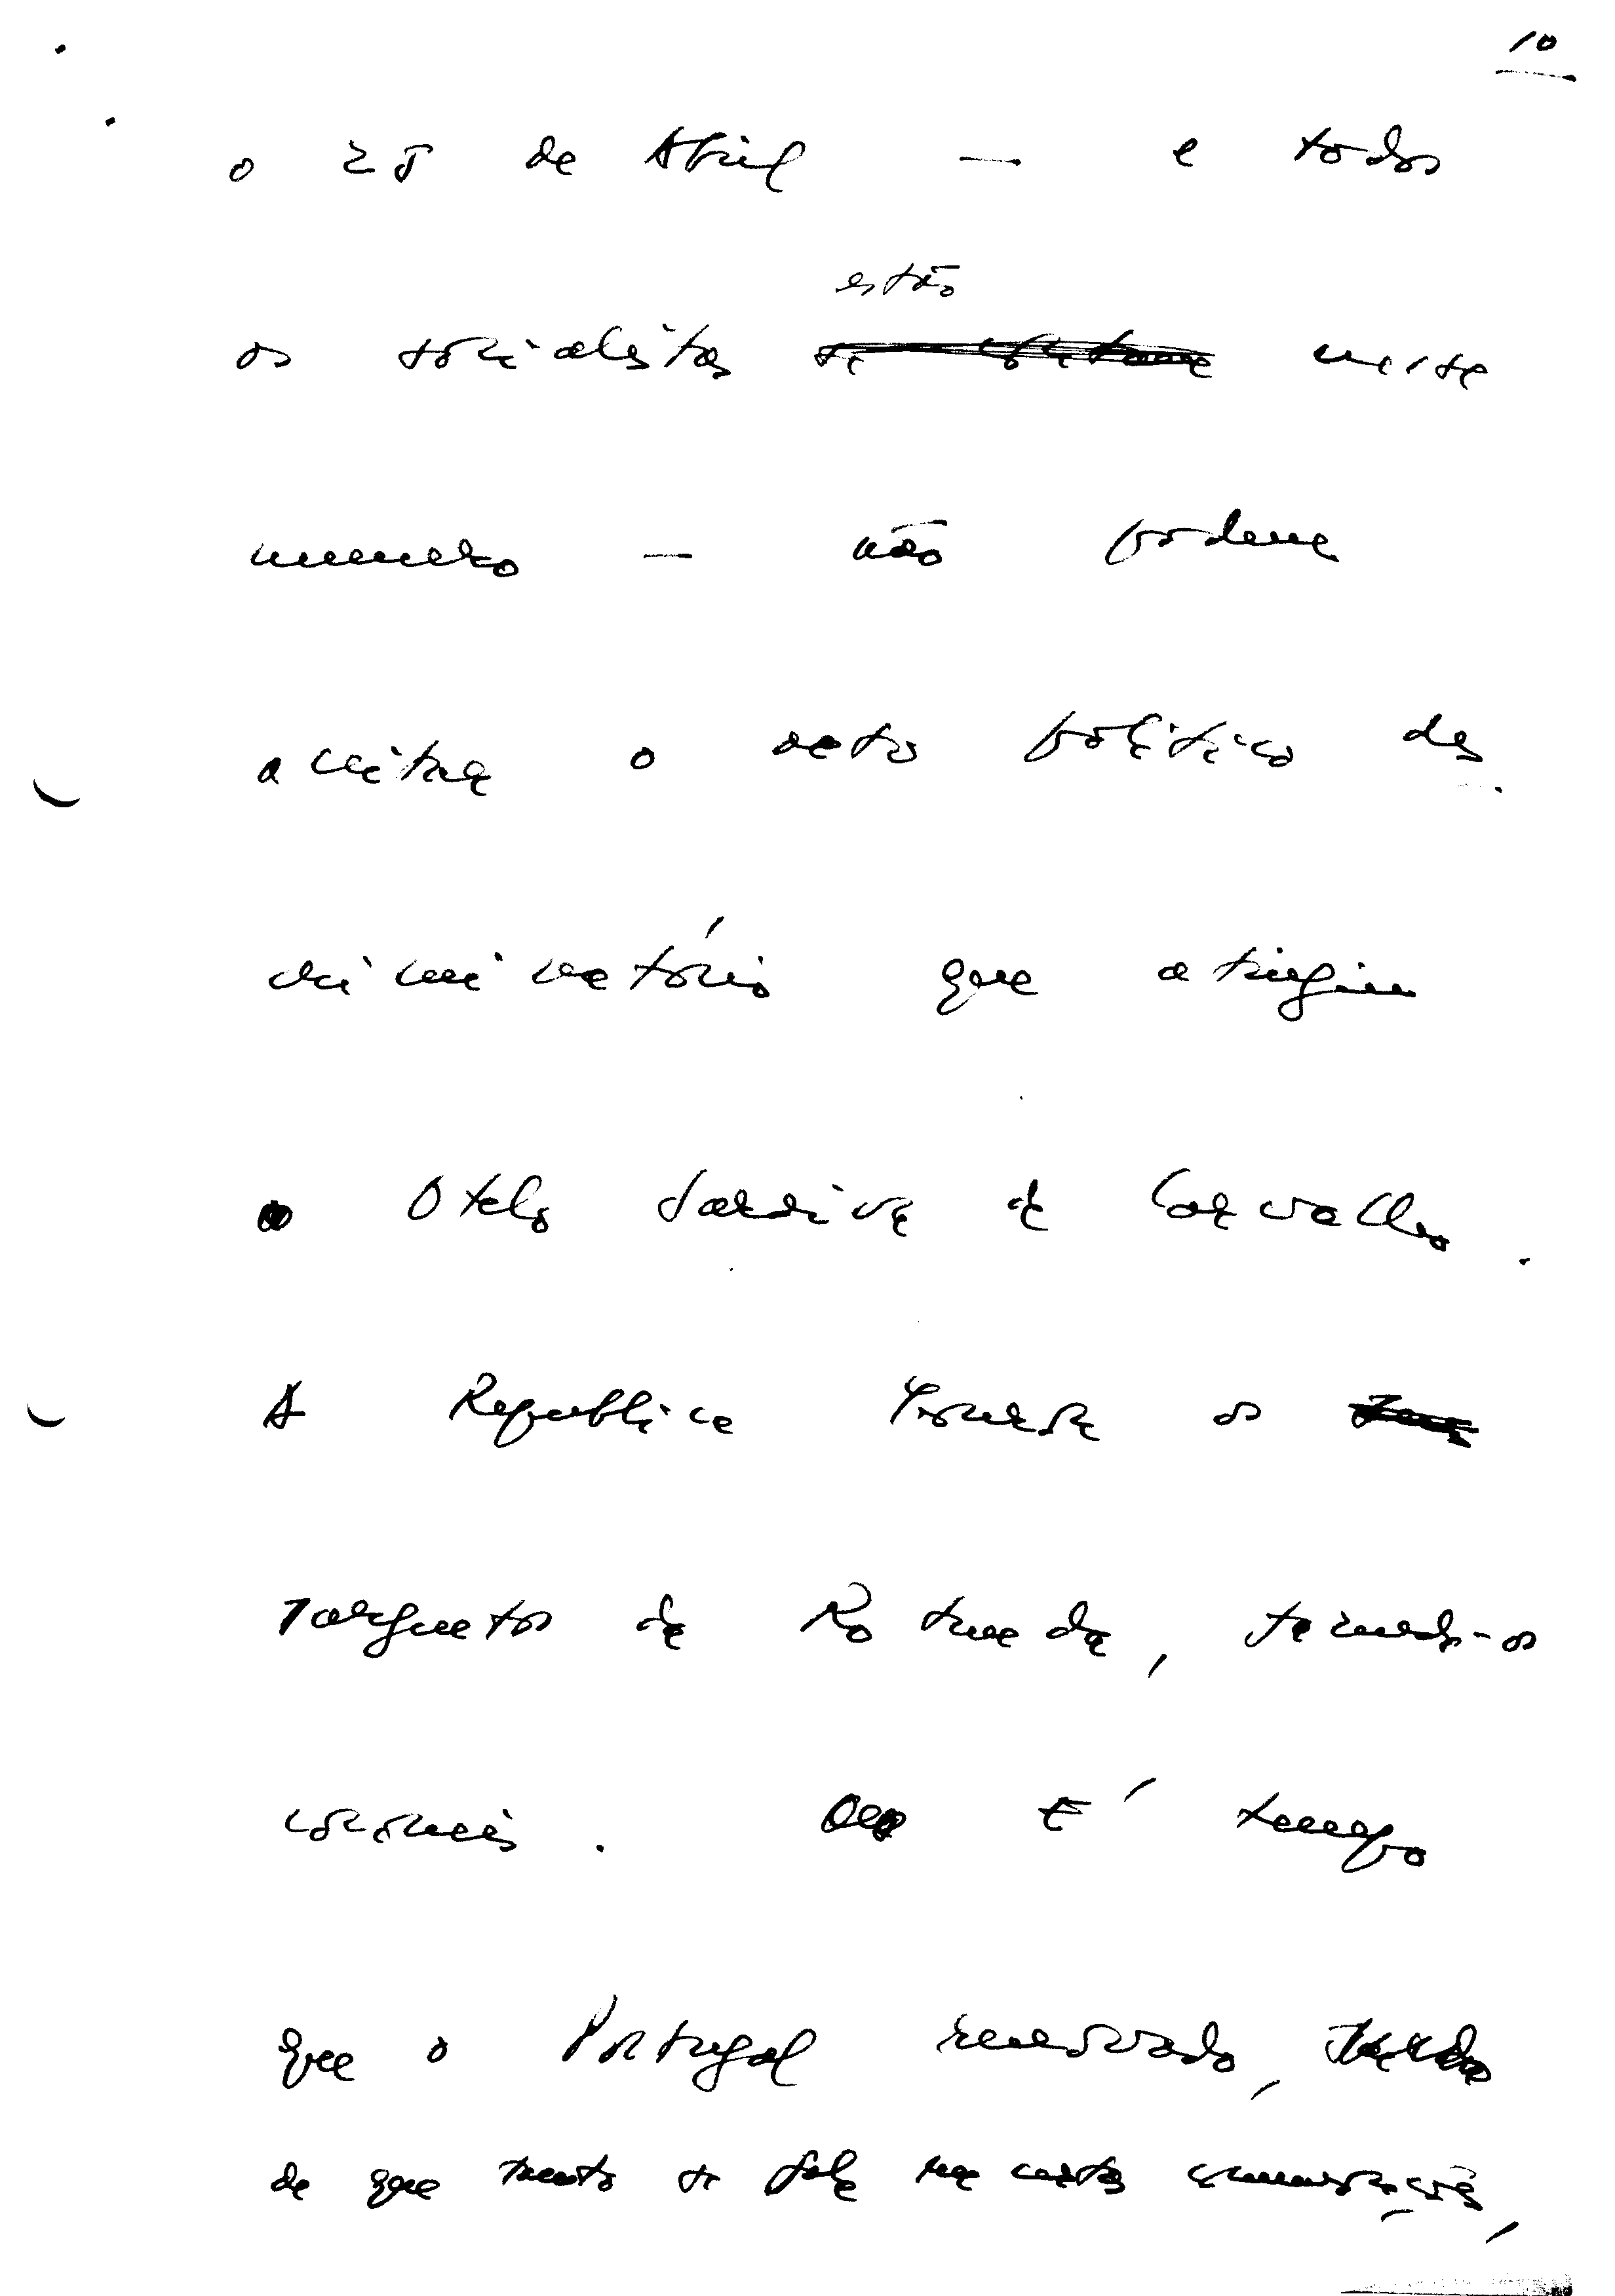 10
o 25 de Abril — e todos
estão
os socialistas neste
momento — não podem
aceitar o acto político dis
criminatório que atingiu
o Otelo Saraiva de Carvalho.
A Republica honrou os
sargentos da Rotunda, fazendo-os
coroneis. É tempo
que o Portugal renovado,
de que tanto se fala nas certas comemorações,